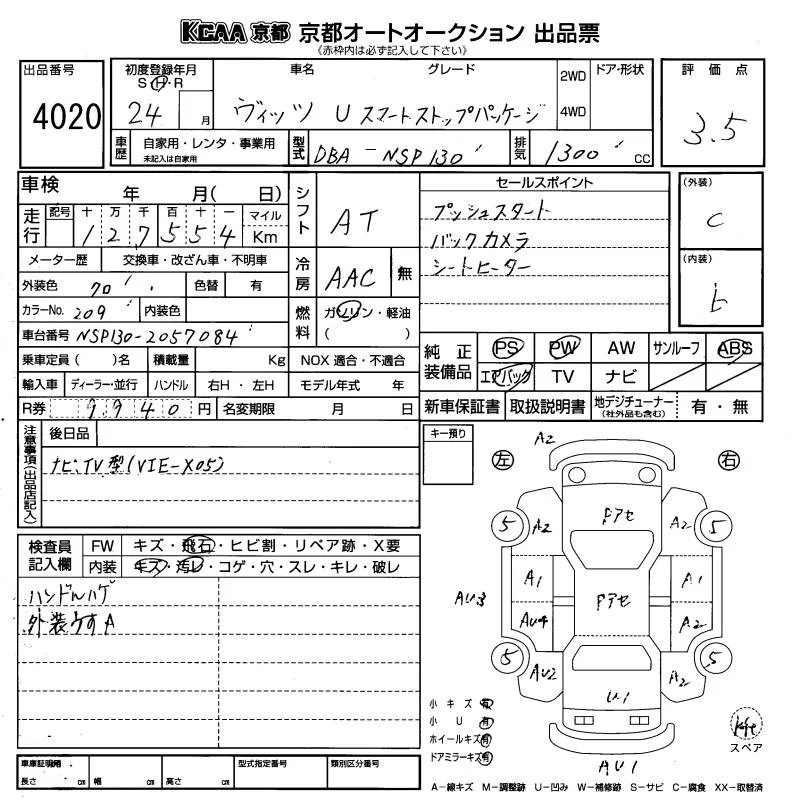 KCAA 京都 京都オートオークション 出品票
(赤枠内は必ず記入して下さい)
出品番号
4020
初度登録年月
S・H・R
24 月
車名
ヴィッツ
グレード
U スマートストップパッケージ
2WD
4WD
ドア・形状
評価点
3.5
車歴
自家用・レンタ・事業用
未記入は自家用
型式
DBA-NSP130
排気
1300 cc
車検 年 月( 日)
走行
記号 十 万 千 百 十 一 マイル
1 2 7 5 5 4 Km
シフト
AT
メーター歴 交換車・改ざん車・不明車
冷房
AAC 無
外装色 70 色替 有
カラーNo. 209 内装色
燃料
ガソリン・軽油
( )
車台番号 NSP130-2057084
乗車定員 ( )名 積載量 Kg NOX 適合・不適合
輸入車 ディーラー・並行 ハンドル 右H・左H モデル年式 年
R券 9940円 名変期限 月 日
セールスポイント
プッシュスタート
バックカメラ
シートヒーター
(外装)
C
(内装)
純正装備品
PS PW AW サンルーフ ABS
エアバック TV ナビ
新車保証書 取扱説明書 地デジチューナー (社外品も含む) 有・無
注意事項(出品店記入)
後日品
ナビTV型(VIE-X05)
検査員記入欄
FW キズ・飛石・ヒビ割・リペア跡・X要
内装 キズ・汚レ・コゲ・穴・スレ・キレ・破レ
ハンドルハゲ
外装うすA
キー預り
左
右
A2
5 A2 Fアセ A2 5
A1 Fアセ A1
AU3
AU4 A2
5 AU2 U1 A2 5
AU1
小キズ 有
小U 有
ホイールキズ 有
ドアミラーキズ 有
スペア
A-線キズ M-調整跡 U-凹み W-補修跡 S-サビ C-腐食 XX-取替済
車庫証明用
長さ cm 幅 cm 高さ cm
型式指定番号
類別区分番号